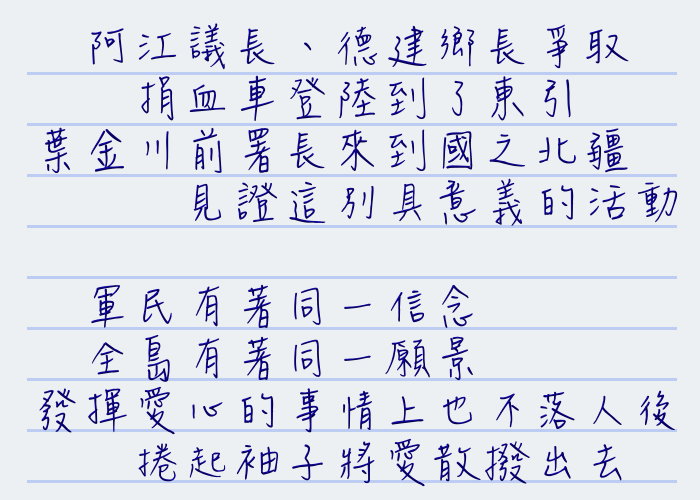 阿江議長、德建鄉長爭取
捐血車登陸到了東引
葉金川前署長來到國之北疆
見證這別具意義的活動
軍民有著同一信念
全島有著同一願景
發揮愛心的事情上也不落人後
捲起袖子將愛散撥出去